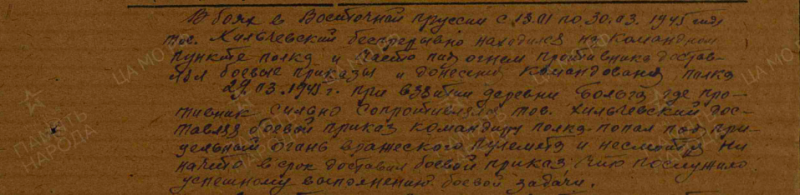 В боях в Восточной Пруссии с 13.01 по 30.03.1945 года
тов. Хильчевский беспрерывно находился на командном
пункте полка и часто под огнем противника достав-
лял боевые приказы и донесения командования полка
29.03.1945 г. при взятии деревни где про-
тивник сильно сопротивлялся тов. Хильчевский дос-
тавляя боевой приказ командиру полка попал под при-
цельный огонь вражеского пулемета и несмотря ни
на что в срок доставил боевой приказ что послужило
успешному выполнению боевой задачи.
ПАМЯТЬ
НАРОДА
ЦА МО